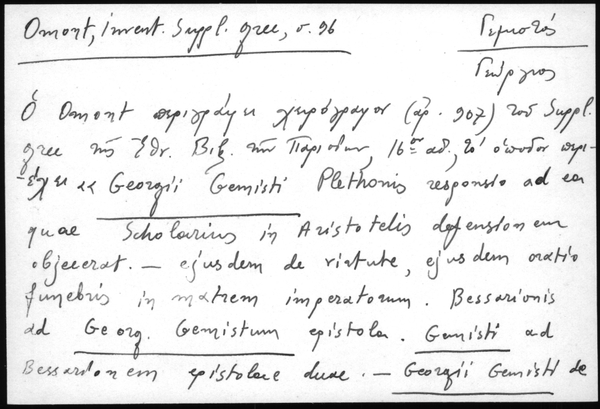 Omont, invent. Suppl. grec, σ. 96
Γεμιστός
Γεώργιος
Ὁ Omont περιγράφει χειρόγραφον (ἀρ. 907) τοῦ Suppl.
grec τῆς Ἐθν. Βιβ. τῶν Παρισίων, 16ου αἰ., τὸ ὁποῖον περι-
-έχει «« Georgii Gemisti Plethonis responsio ad ea
quae Scholarius in Aristotelis defensionem
objecerat. – ejusdem de virtute, ejusdem oratio
funebris in matrem imperatorum. Bessarionis
ad Georg. Gemistum epistola. Gemisti ad
Bessarionem epistolae duae. – Georgii Gemisti de